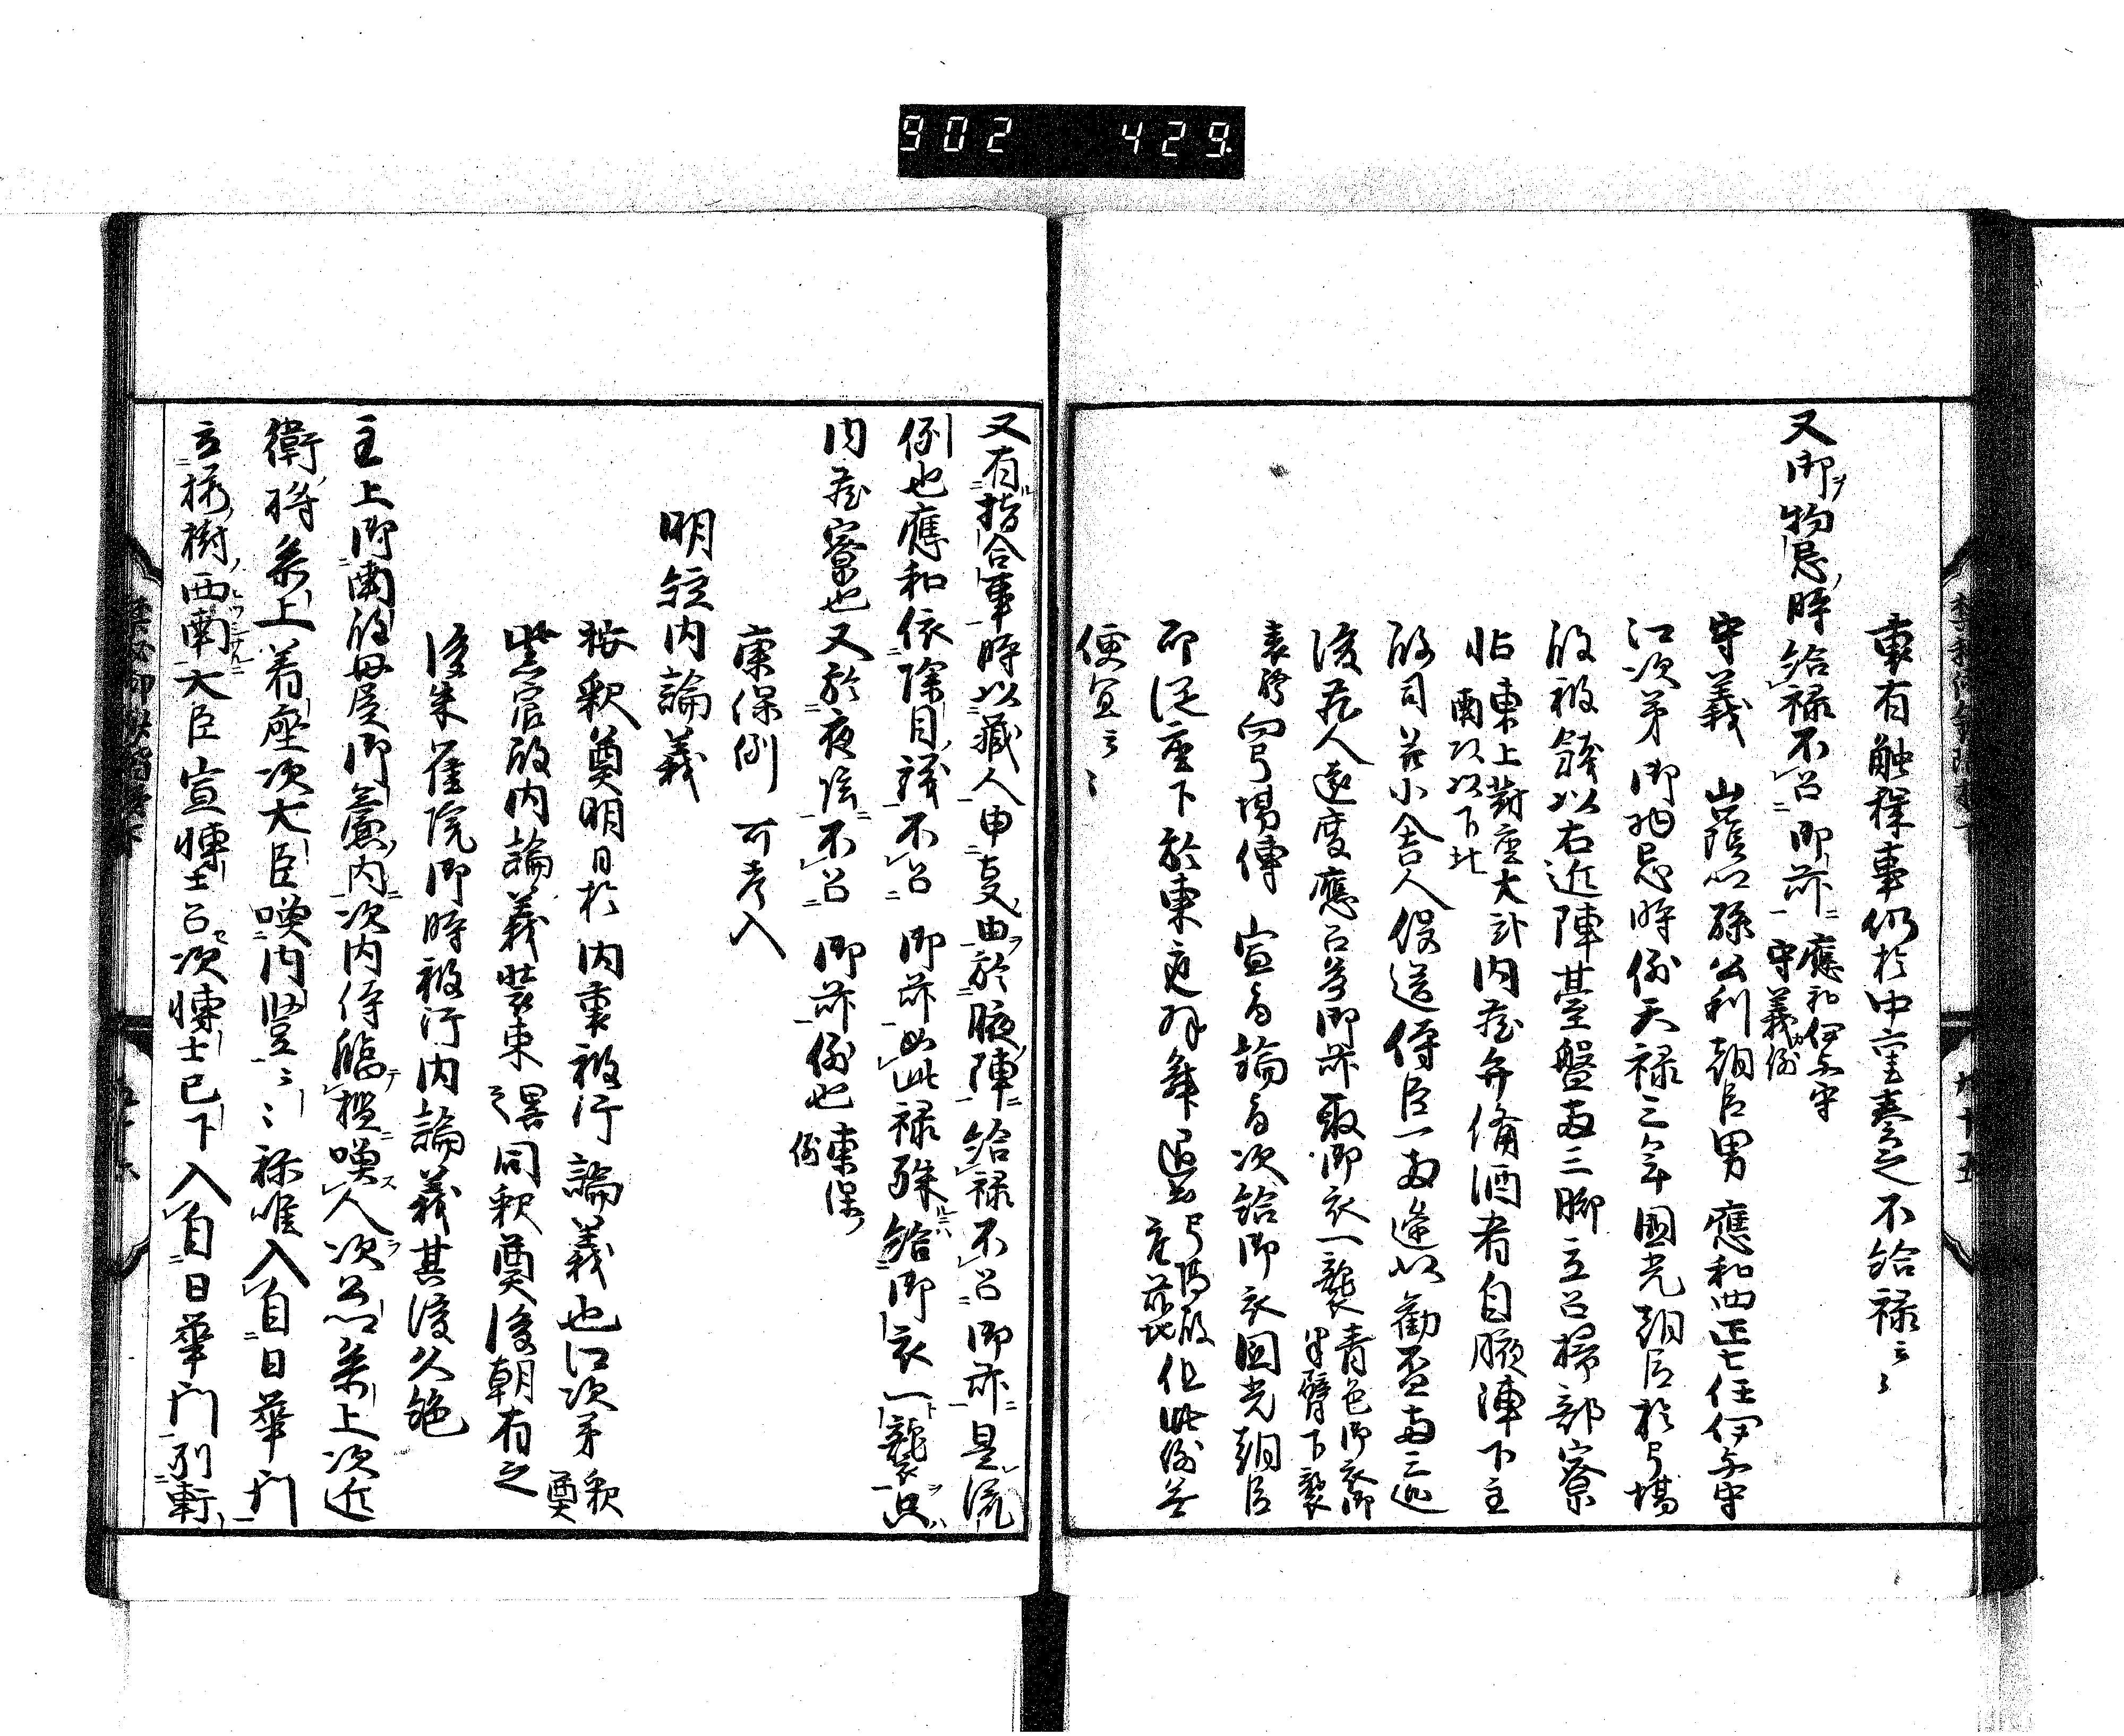 902 429
裏有触穢事仍於中重奏之不給禄云々
又御物忌時給禄不召御前 應和伊与守
守義例
守義 山蔭公孫公利朝臣男 應和四正七任伊与守
江次第御物忌時例天禄三年國光朝臣於弓場
殿被餞以右近陣基盤二三脚立召掃部寮
南次以下北
東上對座大臣内蔵弁備酒肴自腋陣下主
殿司并小舎人役送侍臣一両逢以勸盃両三巡
後蔵人遠度應召参御前取御衣一襲 青色御衣御
半臂下襲
表袴 向弓場傳 宣旨論旨次給御衣國光朝臣
即従座下於東庭拝舞退出 弓場殿
座前地 但此例無
便宜云々
又有指合事時以蔵人申事由於腋陣給禄不召御前是流
例也應和依除目議不召御前如此禄殊給御衣一襲只
内蔵寮也又於夜陰不召御前例也 康保
例
康保例 可考入
明経内論義
按釈奠明日於内裏被行論義也江次第 釈
奠
紫宸殿内論義装束畧之同釈奠後朝有之
後朱雀院御時被行内論義其後久絶
主上御南殿母屋御簾内次内侍臨檻喚人次公卿参上次近
衛将参上着座次大臣喚内竪々々称唯入自日華門
立桜樹西南大臣宣博士召次博士已下入自日華門列軒